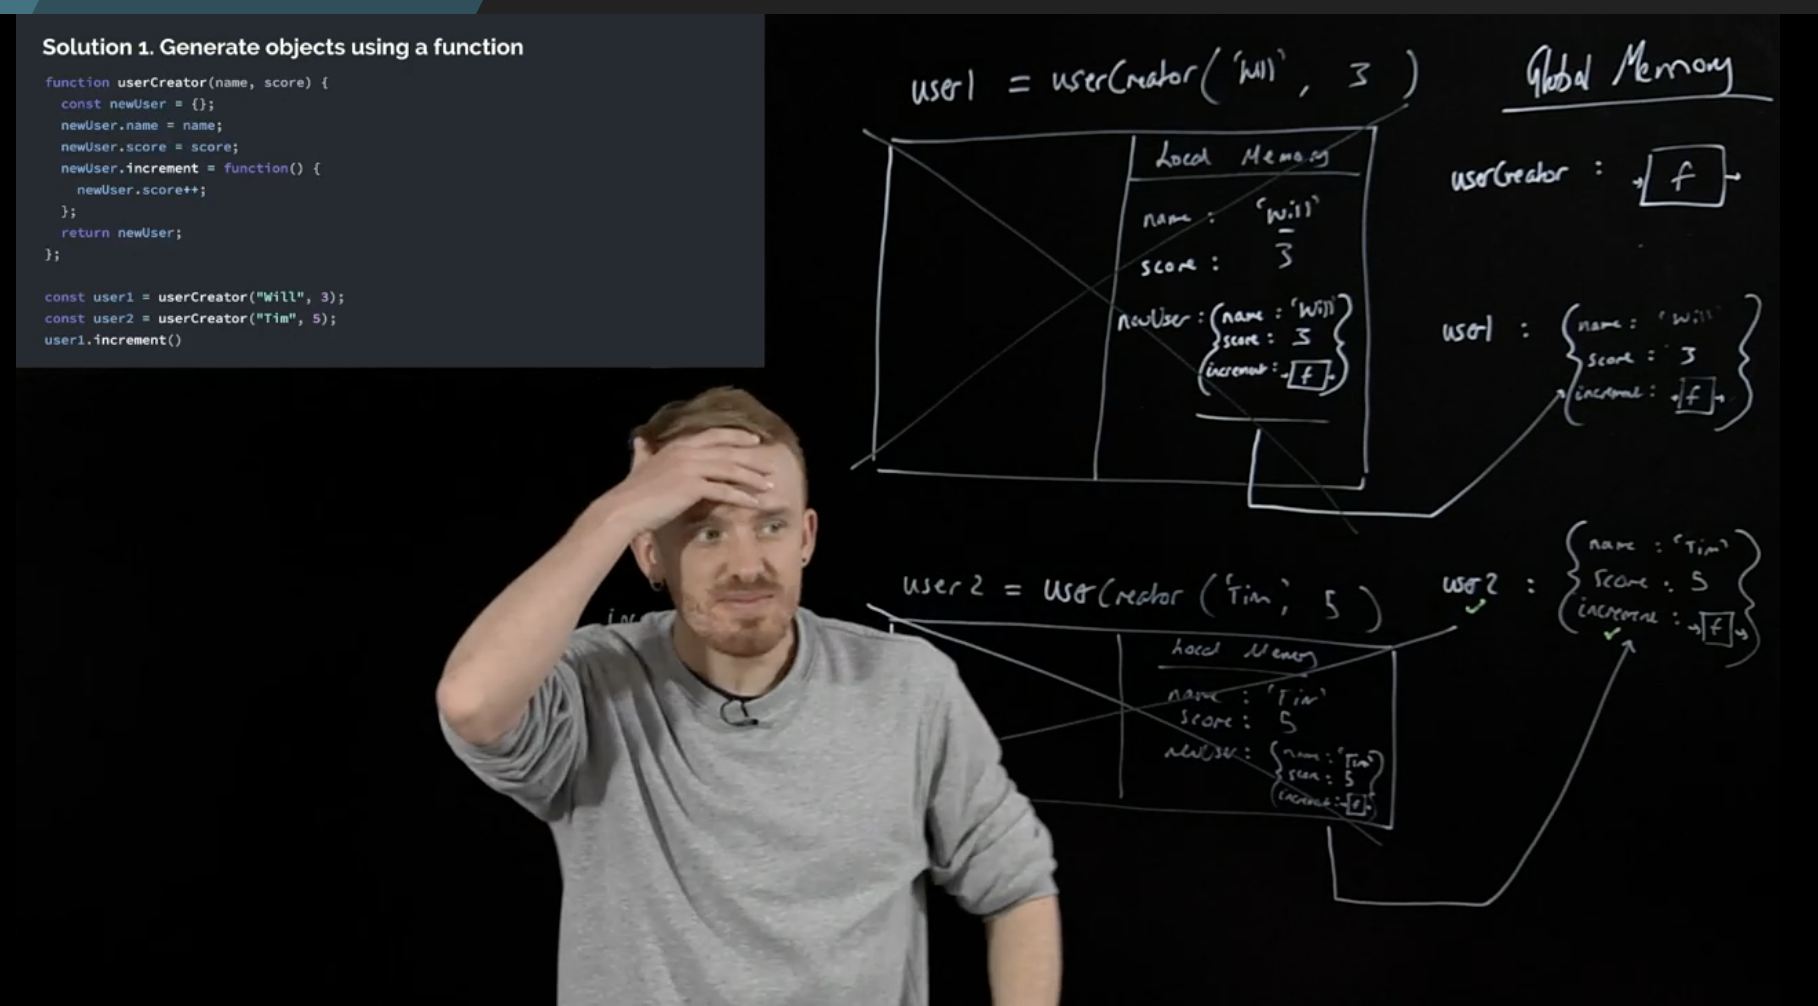 Solution 1. Generate objects using a function
function userCreator(name, score) {
const newUser = {};
newUser.name = name;
newUser.score = score;
newUser.increment = function() {
newUser.score++;
};
return newUser;
};
const user1 = userCreator("Will", 3);
const user2 = userCreator("Tim", 5);
user1.increment()
user1 = userCreator('Will', 3)
Local Memory
name : 'Will'
score : 3
newUser : {name : 'Will'
score : 3
increment : f}
Global Memory
userCreator : f
user1 : {name : 'Will'
score : 3
increment : f}
user2 = userCreator('Tim', 5)
Local Memory
name : 'Tim'
score : 5
newUser : {name : 'Tim'
score : 5
increment : f}
user2 : {name : 'Tim'
score : 5
increment : f}